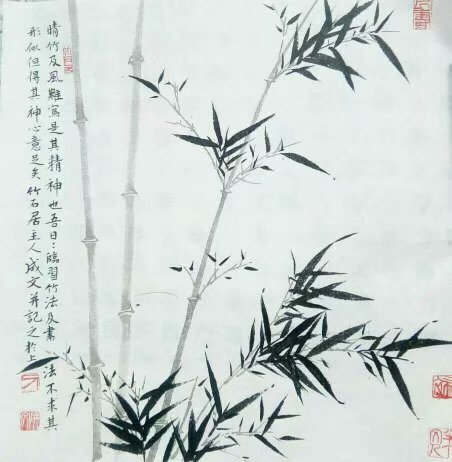 晴竹及風難寫是其精神也吾日:臨習竹法及書法不求其
形似但得其神心意足矣竹石居主人成文并記之於上